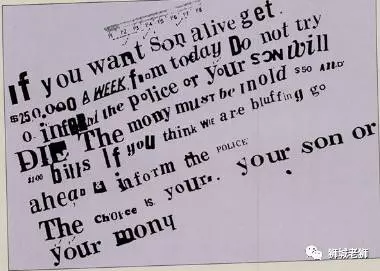 If you want Son alive get.
$250,000 A WEEK from today Do not try
o. inform the police or your SON will
DIE The mony must be in old $50 AND
$100 bills If you think WE are bluffing go
ahead & inform the POLICE
The Choice is yours. your son or
your mony
狮城老狮